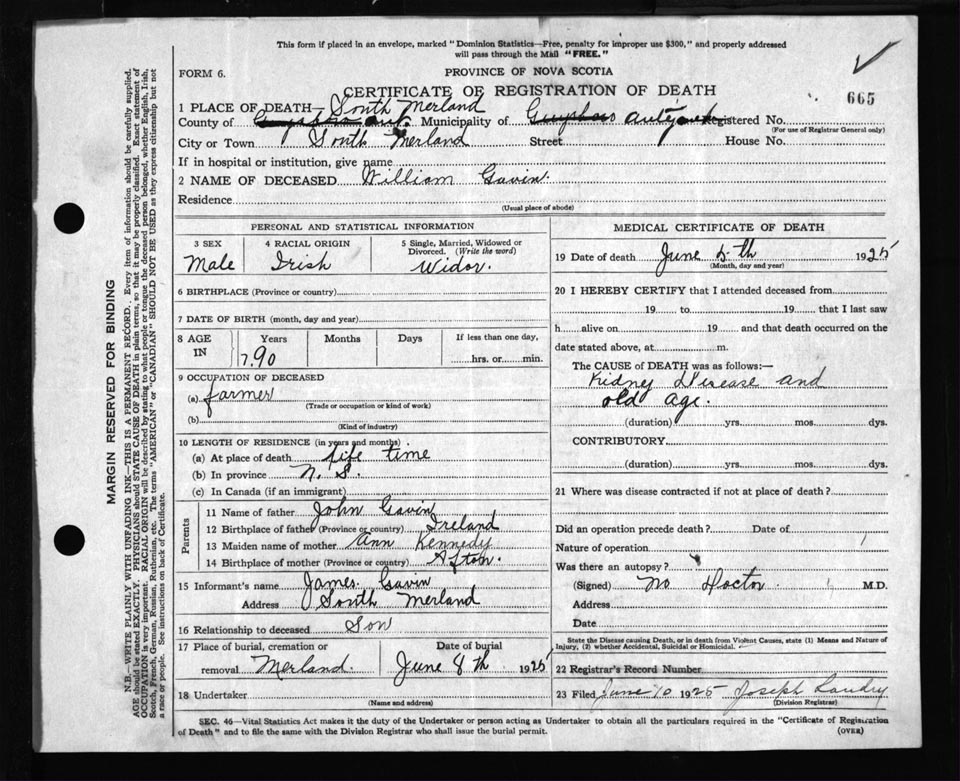 This form if placed in an envelope, marked "Dominion Statistics—Free, penalty for improper use $300," and properly addressed
will pass through the Mail "FREE."
FORM 6.
PROVINCE OF NOVA SCOTIA
CERTIFICATE OF REGISTRATION OF DEATH
665
1 PLACE OF DEATH— South Merland
County of Municipality of Registered No.
(For use of Registrar General only)
City or Town South Merland Street House No.
If in hospital or institution, give name
2 NAME OF DECEASED William Gavin.
Residence
(Usual place of abode)
PERSONAL AND STATISTICAL INFORMATION
3 SEX 4 RACIAL ORIGIN 5 Single, Married, Widowed or
Divorced. (Write the word)
Male Irish Widor.
6 BIRTHPLACE (Province or country)
7 DATE OF BIRTH (month, day and year)
8 AGE Years Months Days If less than one day,
IN 90 hrs. or min.
9 OCCUPATION OF DECEASED
(a) farmer
(Trade or occupation or kind of work)
(b)
(Kind of industry)
10 LENGTH OF RESIDENCE (in years and months)
(a) At place of death life time
(b) In province N. S.
(c) In Canada (if an immigrant)
Parents
11 Name of father John Gavin
12 Birthplace of father (Province or country) Ireland
13 Maiden name of mother Ann Kennedy
14 Birthplace of mother (Province or country) Afton.
15 Informant's name James Gavin
Address South Merland
16 Relationship to deceased Son
17 Place of burial, cremation or Date of burial
removal Merland. June 8th 1925
18 Undertaker
(Name and address)
MEDICAL CERTIFICATE OF DEATH
19 Date of death June 5th 1925
(Month, day and year)
20 I HEREBY CERTIFY that I attended deceased from
19 to 19 that I last saw
h alive on 19 and that death occurred on the
date stated above, at m.
The CAUSE OF DEATH was as follows:—
Kidney Disease and
old age.
(duration) yrs. mos. dys.
CONTRIBUTORY
(duration) yrs. mos. dys.
21 Where was disease contracted if not at place of death?
Did an operation precede death? Date of
Nature of operation
Was there an autopsy?
(Signed) No Doctor M.D.
Address
Date
State the Disease causing Death, or in death from Violent Causes, state (1) Means and Nature of
Injury, (2) whether Accidental, Suicidal or Homicidal.
22 Registrar's Record Number
23 Filed June 10 1925 Joseph Landry
(Division Registrar)
SEC. 46—Vital Statistics Act makes it the duty of the Undertaker or person acting as Undertaker to obtain all the particulars required in the "Certificate of Registration
of Death" and to file the same with the Division Registrar who shall issue the burial permit.
(OVER)
MARGIN RESERVED FOR BINDING
N.B.—WRITE PLAINLY WITH UNFADING INK—THIS IS A PERMANENT RECORD. Every item of information should be carefully supplied.
AGE should be stated EXACTLY. PHYSICIANS should STATE CAUSE OF DEATH in plain terms, so that it may be properly classified. Exact statement of
OCCUPATION is very important. RACIAL ORIGIN will be described by stating to what people or tongue the deceased person belonged, whether English, Irish,
Scotch, French, German, Russian, Ruthenian, etc. The terms "AMERICAN" or "CANADIAN" SHOULD NOT BE USED as they express citizenship but not
a race or people. See instructions on back of Certificate.